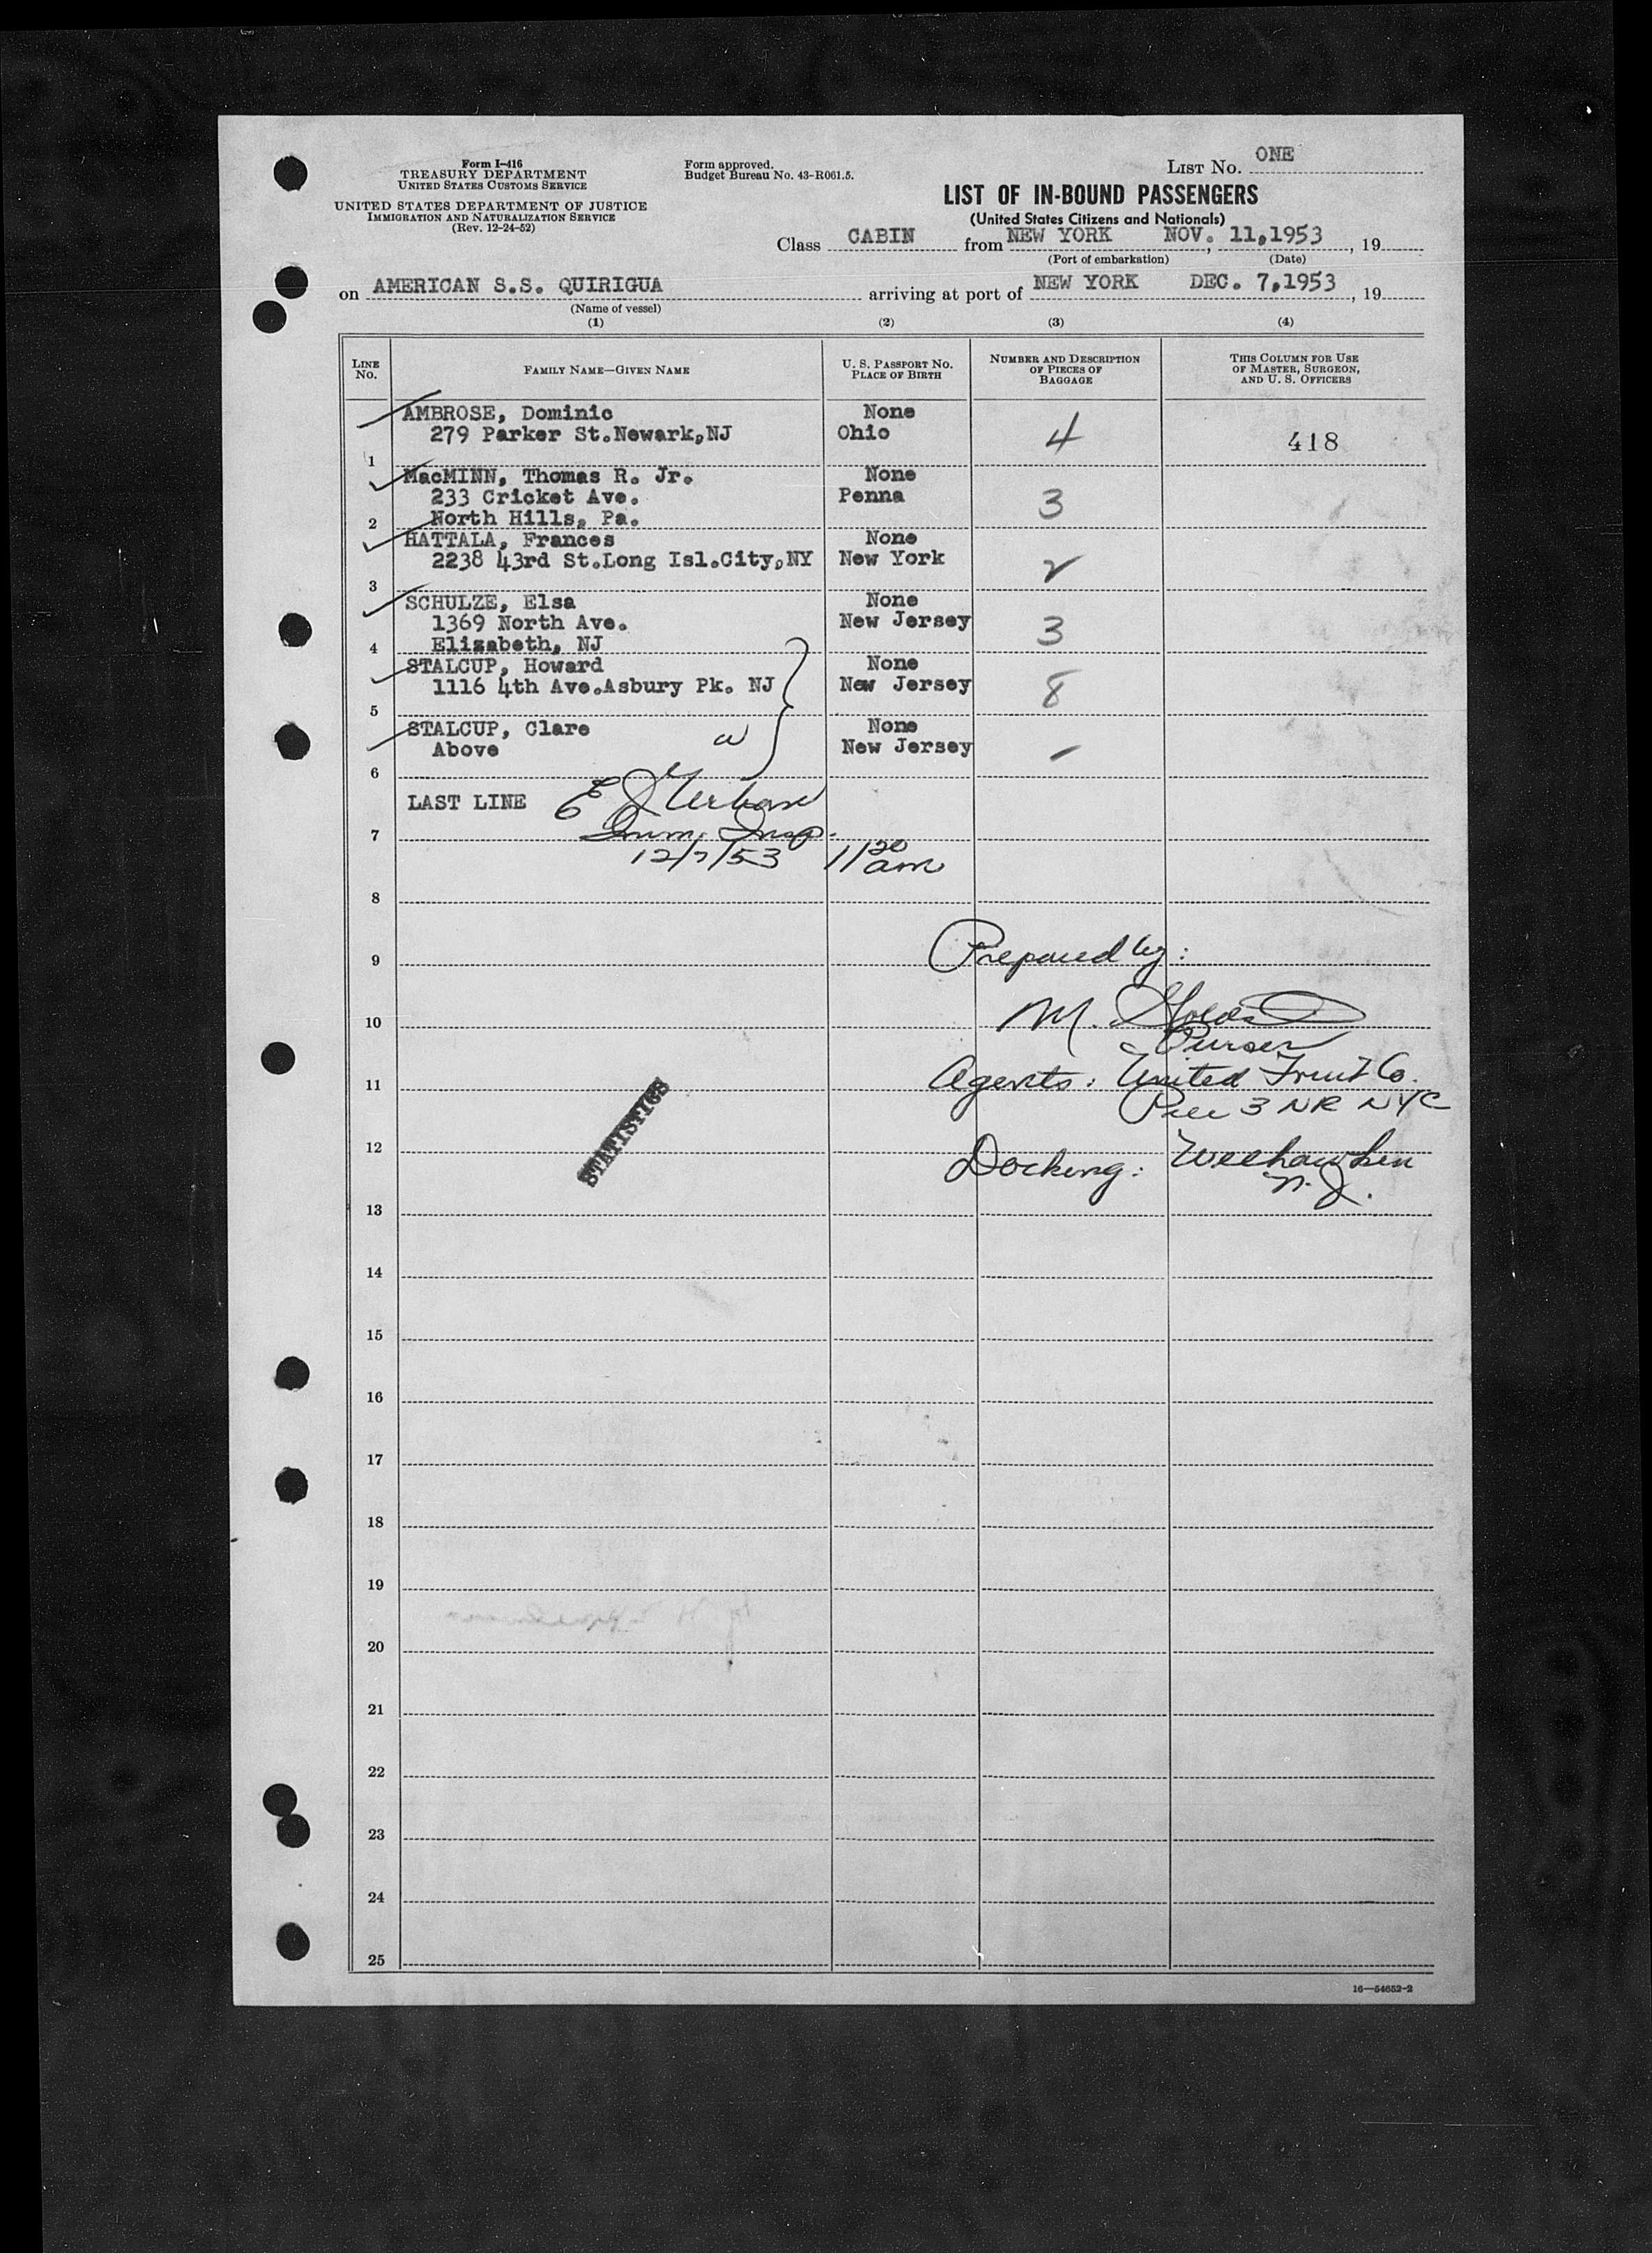 Form I-416
TREASURY DEPARTMENT
UNITED STATES CUSTOMS SERVICE
UNITED STATES DEPARTMENT OF JUSTICE
IMMIGRATION AND NATURALIZATION SERVICE
(Rev. 12-24-52)
Form approved.
Budget Bureau No. 43-R061.5.
LIST No. ONE
LIST OF IN-BOUND PASSENGERS
(United States Citizens and Nationals)
Class CABIN from NEW YORK NOV. 11,1953, 19
(Port of embarkation) (Date)
on AMERICAN S.S. QUIRIGUA arriving at port of NEW YORK DEC. 7,1953, 19
(Name of vessel)
(1) (2) (3) (4)
LINE No. FAMILY NAME—GIVEN NAME U. S. PASSPORT No. PLACE OF BIRTH NUMBER AND DESCRIPTION OF PIECES OF BAGGAGE THIS COLUMN FOR USE OF MASTER, SURGEON, AND U. S. OFFICERS
AMBROSE, Dominic None
279 Parker St.Newark,NJ Ohio 4 418
1
MacMINN, Thomas R. Jr. None
233 Cricket Ave. Penna 3
2 North Hills, Pa.
HATTALA, Frances None
2238 43rd St.Long Isl.City,NY New York 2
3
SCHULZE, Elsa None
1369 North Ave. New Jersey 3
4 Elizabeth, NJ
STALCUP, Howard None
1116 4th Ave.Asbury Pk. NJ New Jersey 8
5
STALCUP, Clare None
Above w New Jersey -
6
LAST LINE E J
7 Imm. Insp.
12/7/53 11 20 am
8
9 Prepared by:
10 M.
Purser
11 Agents: United Fruit Co.
Pier 3 NR NYC
12 Docking: Weehawken
N.J.
STATISTICS
13
14
15
16
17
18
19
20
21
22
23
24
25
16—54652-2